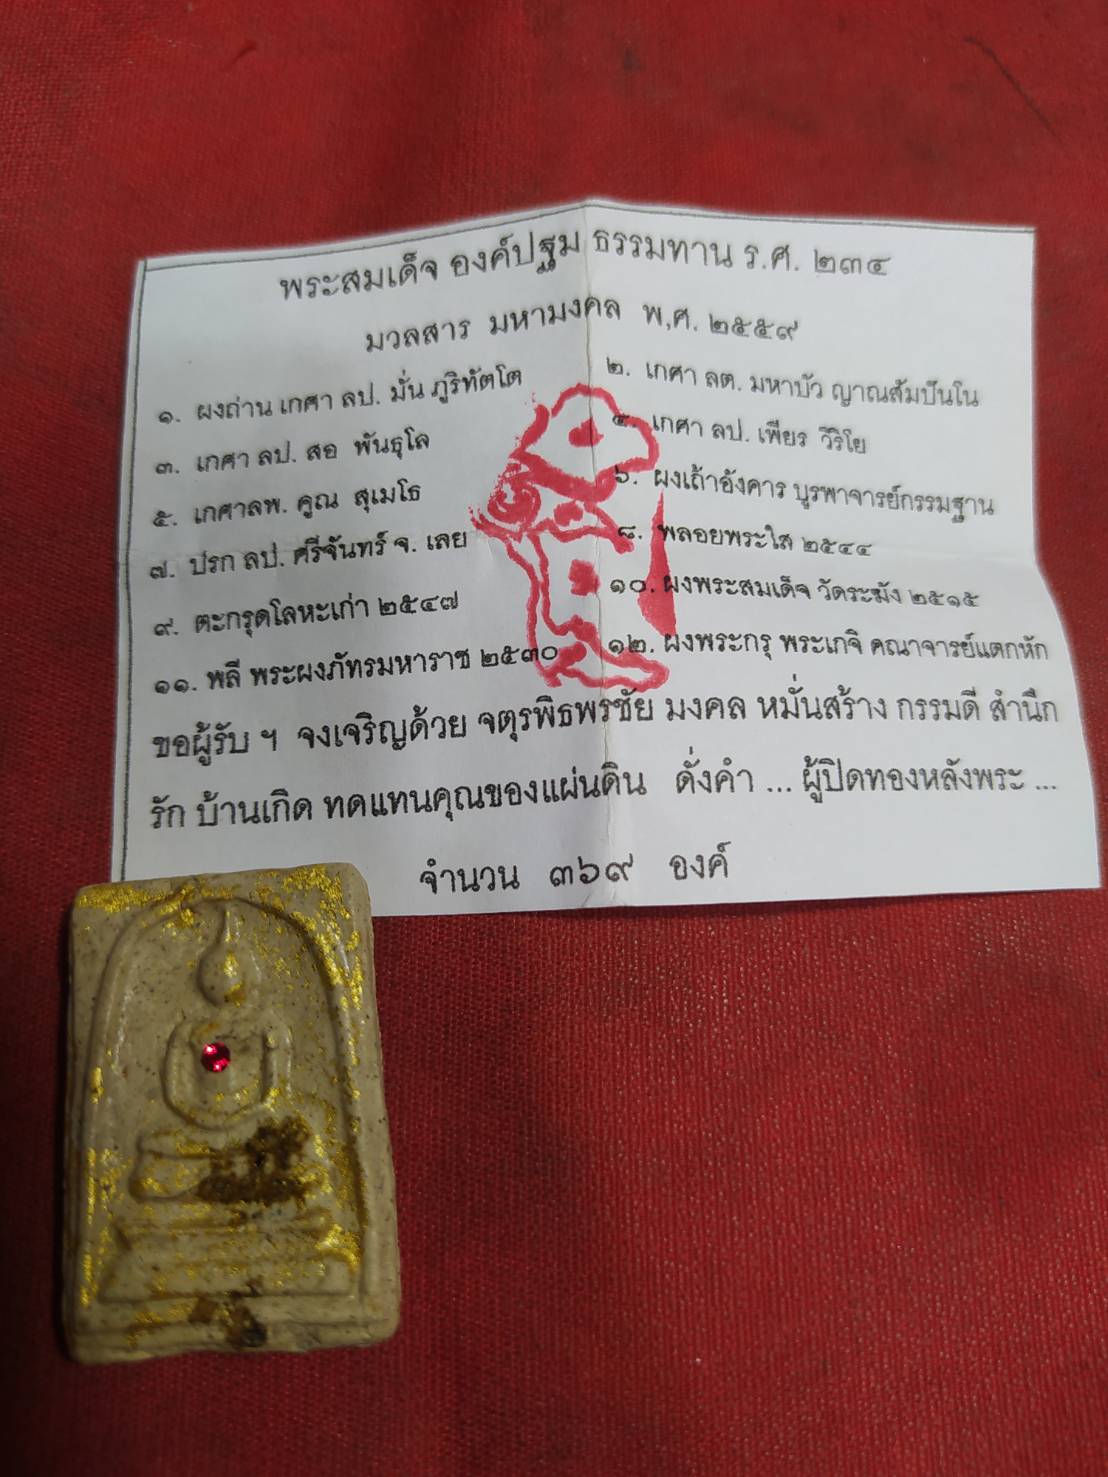 พระสมเด็จ องค์ปฐม ธรรมทาน ร.ศ. ๒๓๔
มวลสาร มหามงคล พ,ศ. ๒๕๕๙
๑. ผงถ่าน เกศา ลป. มั่น ภูริทัตโต
๒. เกศา ลต. มหาบัว ญาณสัมปันโน
๓. เกศา ลป. สอ พันธุโล
๔. เกศา ลป. เพียร วิริโย
๕. เกศาลพ. คูณ สุเมโธ
๖. ผงเถ้าอังคาร บูรพาจารย์กรรมฐาน
๗. ปรก ลป. ศรีจันทร์ จ. เลย
๘. พลอยพระใส ๒๕๔๔
๙. ตะกรุดโลหะเก่า ๒๕๔๗
๑๐. ผงพระสมเด็จ วัดระฆัง ๒๕๑๕
๑๑. พลี พระผงภัทรมหาราช ๒๕๓๐
๑๒. ผงพระกรุ พระเกจิ คณาจารย์แตกหัก
ขอผู้รับ ฯ จงเจริญด้วย จตุรพิธพรชัย มงคล หมั่นสร้าง กรรมดี สำนึก
รัก บ้านเกิด ทดแทนคุณของแผ่นดิน ดั่งคำ ... ผู้ปิดทองหลังพระ ...
จำนวน ๓๖๙ องค์